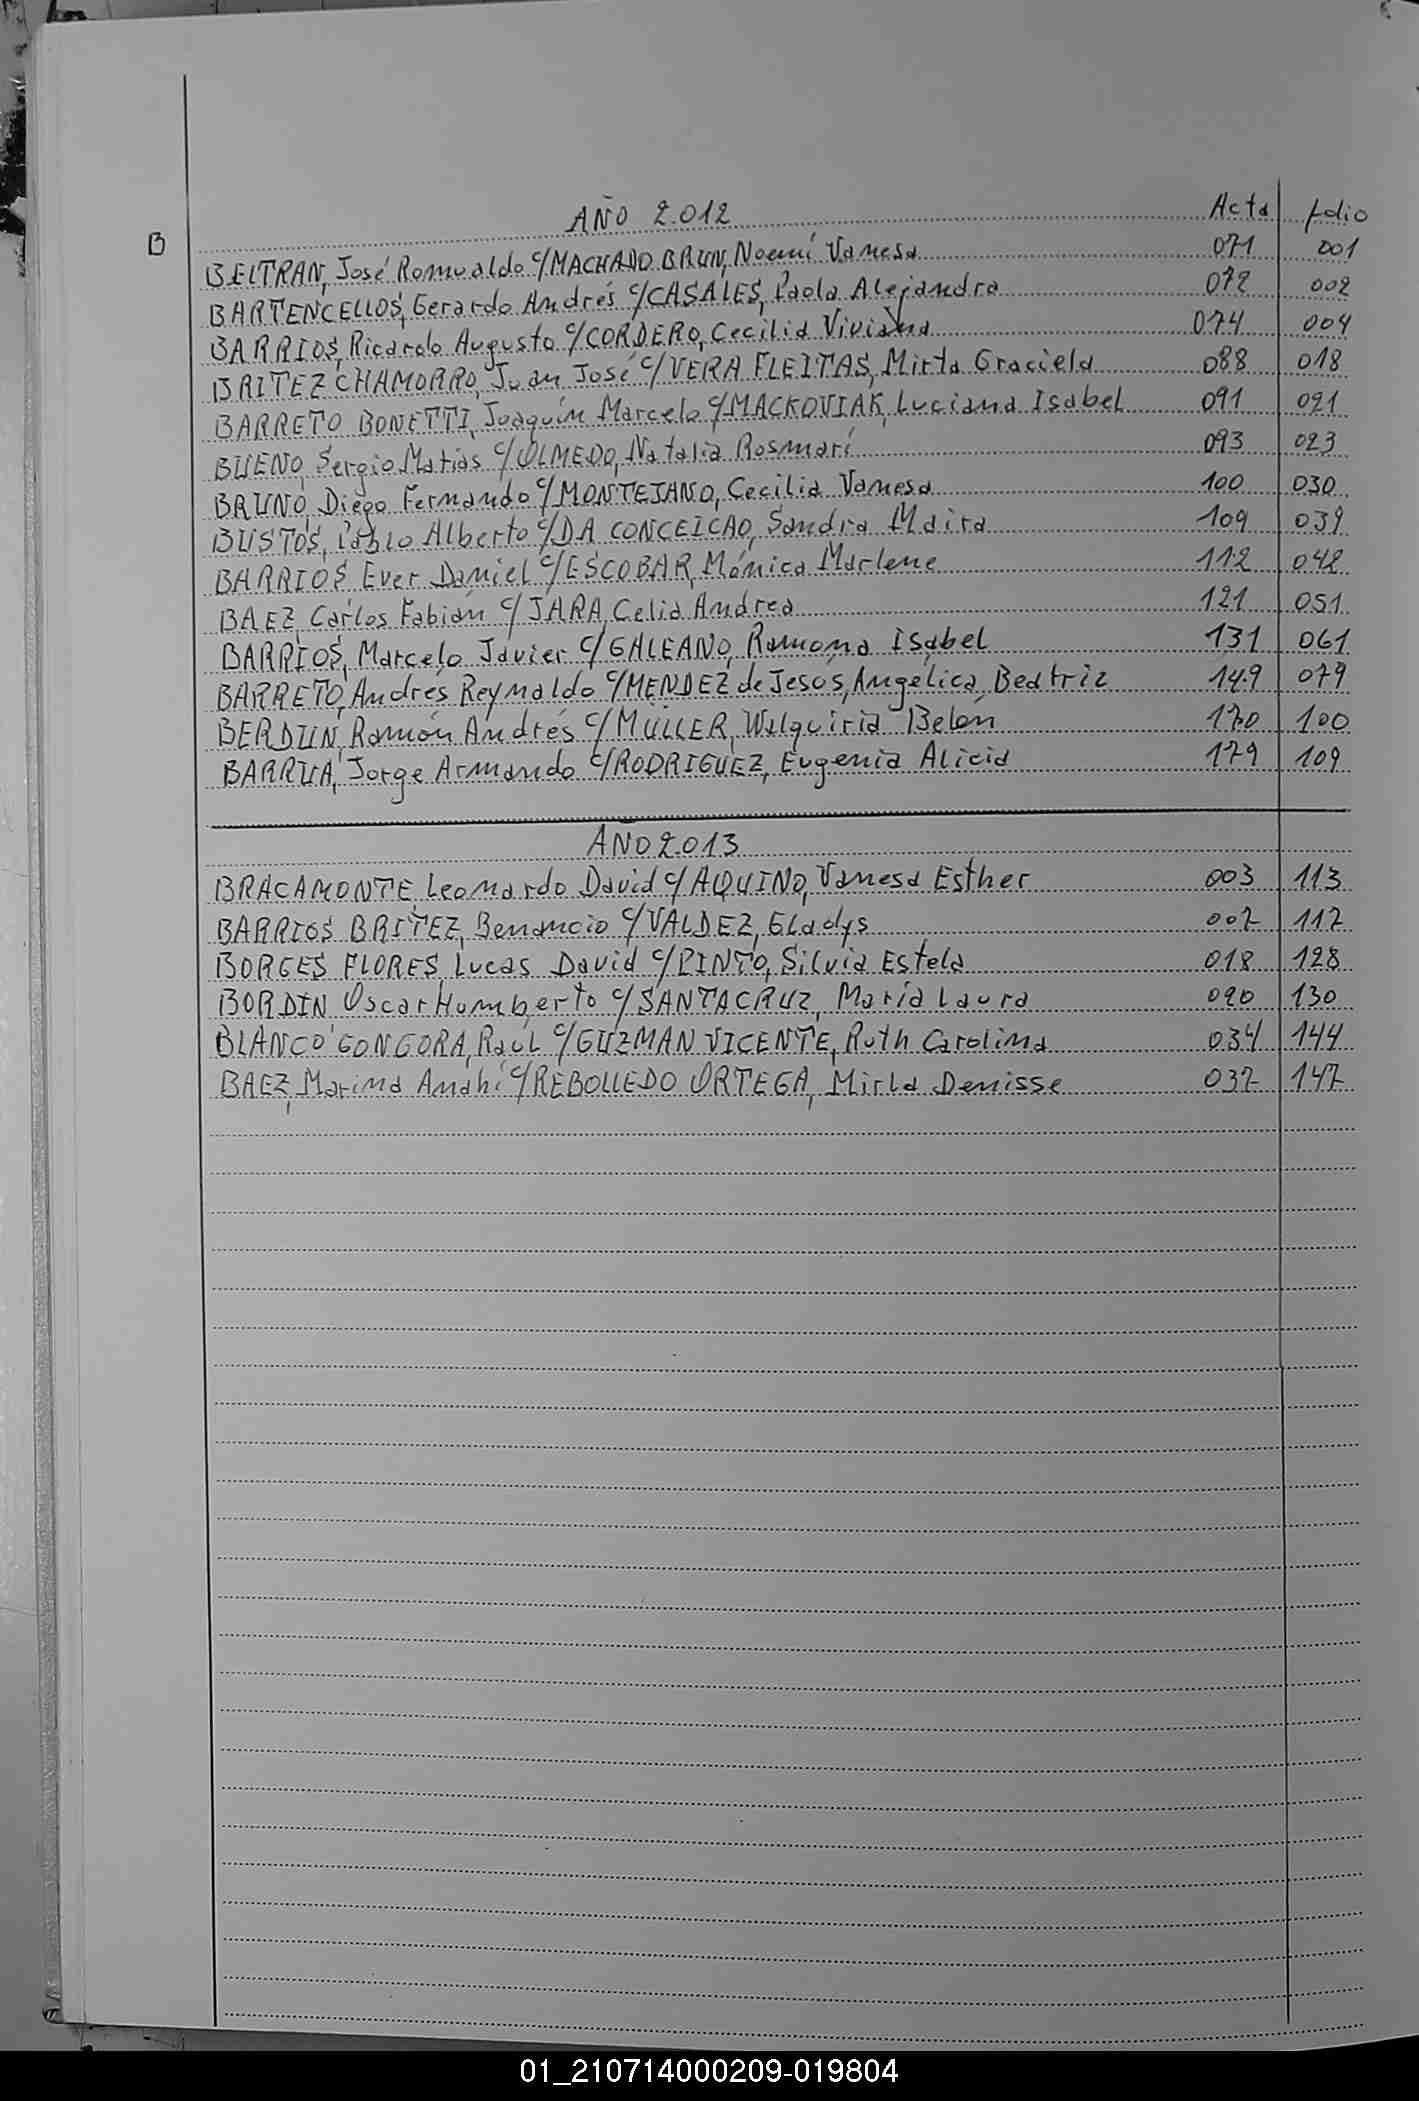 AÑO 2.012 Acta folio
B
BELTRAN, José Romualdo c/MACHADO BRUN, Noemí Vanesa 071 001
BARTENCELLOS, Gerardo Andrés c/CASALES, Paola Alejandra 072 002
BARRIOS, Ricardo Augusto c/CORDERO, Cecilia Viviana 074 004
BRITEZ CHAMORRO, Juan José c/VERA FLEITAS, Mirta Graciela 088 018
BARRETO BONETTI, Joaquín Marcelo c/MACKOVIAK, Luciana Isabel 091 021
BUENO, Sergio Matias c/OLMEDO, Natalia Rosmarí 093 023
BRUNO, Diego Fernando c/MONTEJANO, Cecilia Vanesa 100 030
BUSTOS, Pablo Alberto c/DA CONCEICAO, Sandra Maira 109 039
BARRIOS, Ever Daniel c/ESCOBAR, Mónica Marlene 112 042
BAEZ, Carlos Fabián c/JARA, Celia Andrea 121 051
BARRIOS, Marcelo Javier c/GALEANO, Ramona Isabel 131 061
BARRETO, Andrés Reynaldo c/MENDEZ de Jesús, Angélica Beatriz 149 079
BERDUN, Ramón Andrés c/MÜLLER, Walquiria Belén 170 100
BARRUA, Jorge Armando c/RODRIGUEZ, Eugenia Alicia 179 109
AÑO 2.013
BRACAMONTE, Leonardo David c/AQUINO, Vanesa Esther 003 113
BARRIOS BRITEZ, Benancio c/VALDEZ, Gladys 007 117
BORGES FLORES, Lucas David c/PINTO, Silvia Estela 018 128
BORDIN, Oscar Humberto c/SANTACRUZ, María Laura 020 130
BLANCO GONGORA, Raúl c/GUZMAN VICENTE, Ruth Carolina 034 144
BAEZ, Marina Anahí c/REBOLLEDO ORTEGA, Mirla Denisse 037 147
01_210714000209-019804